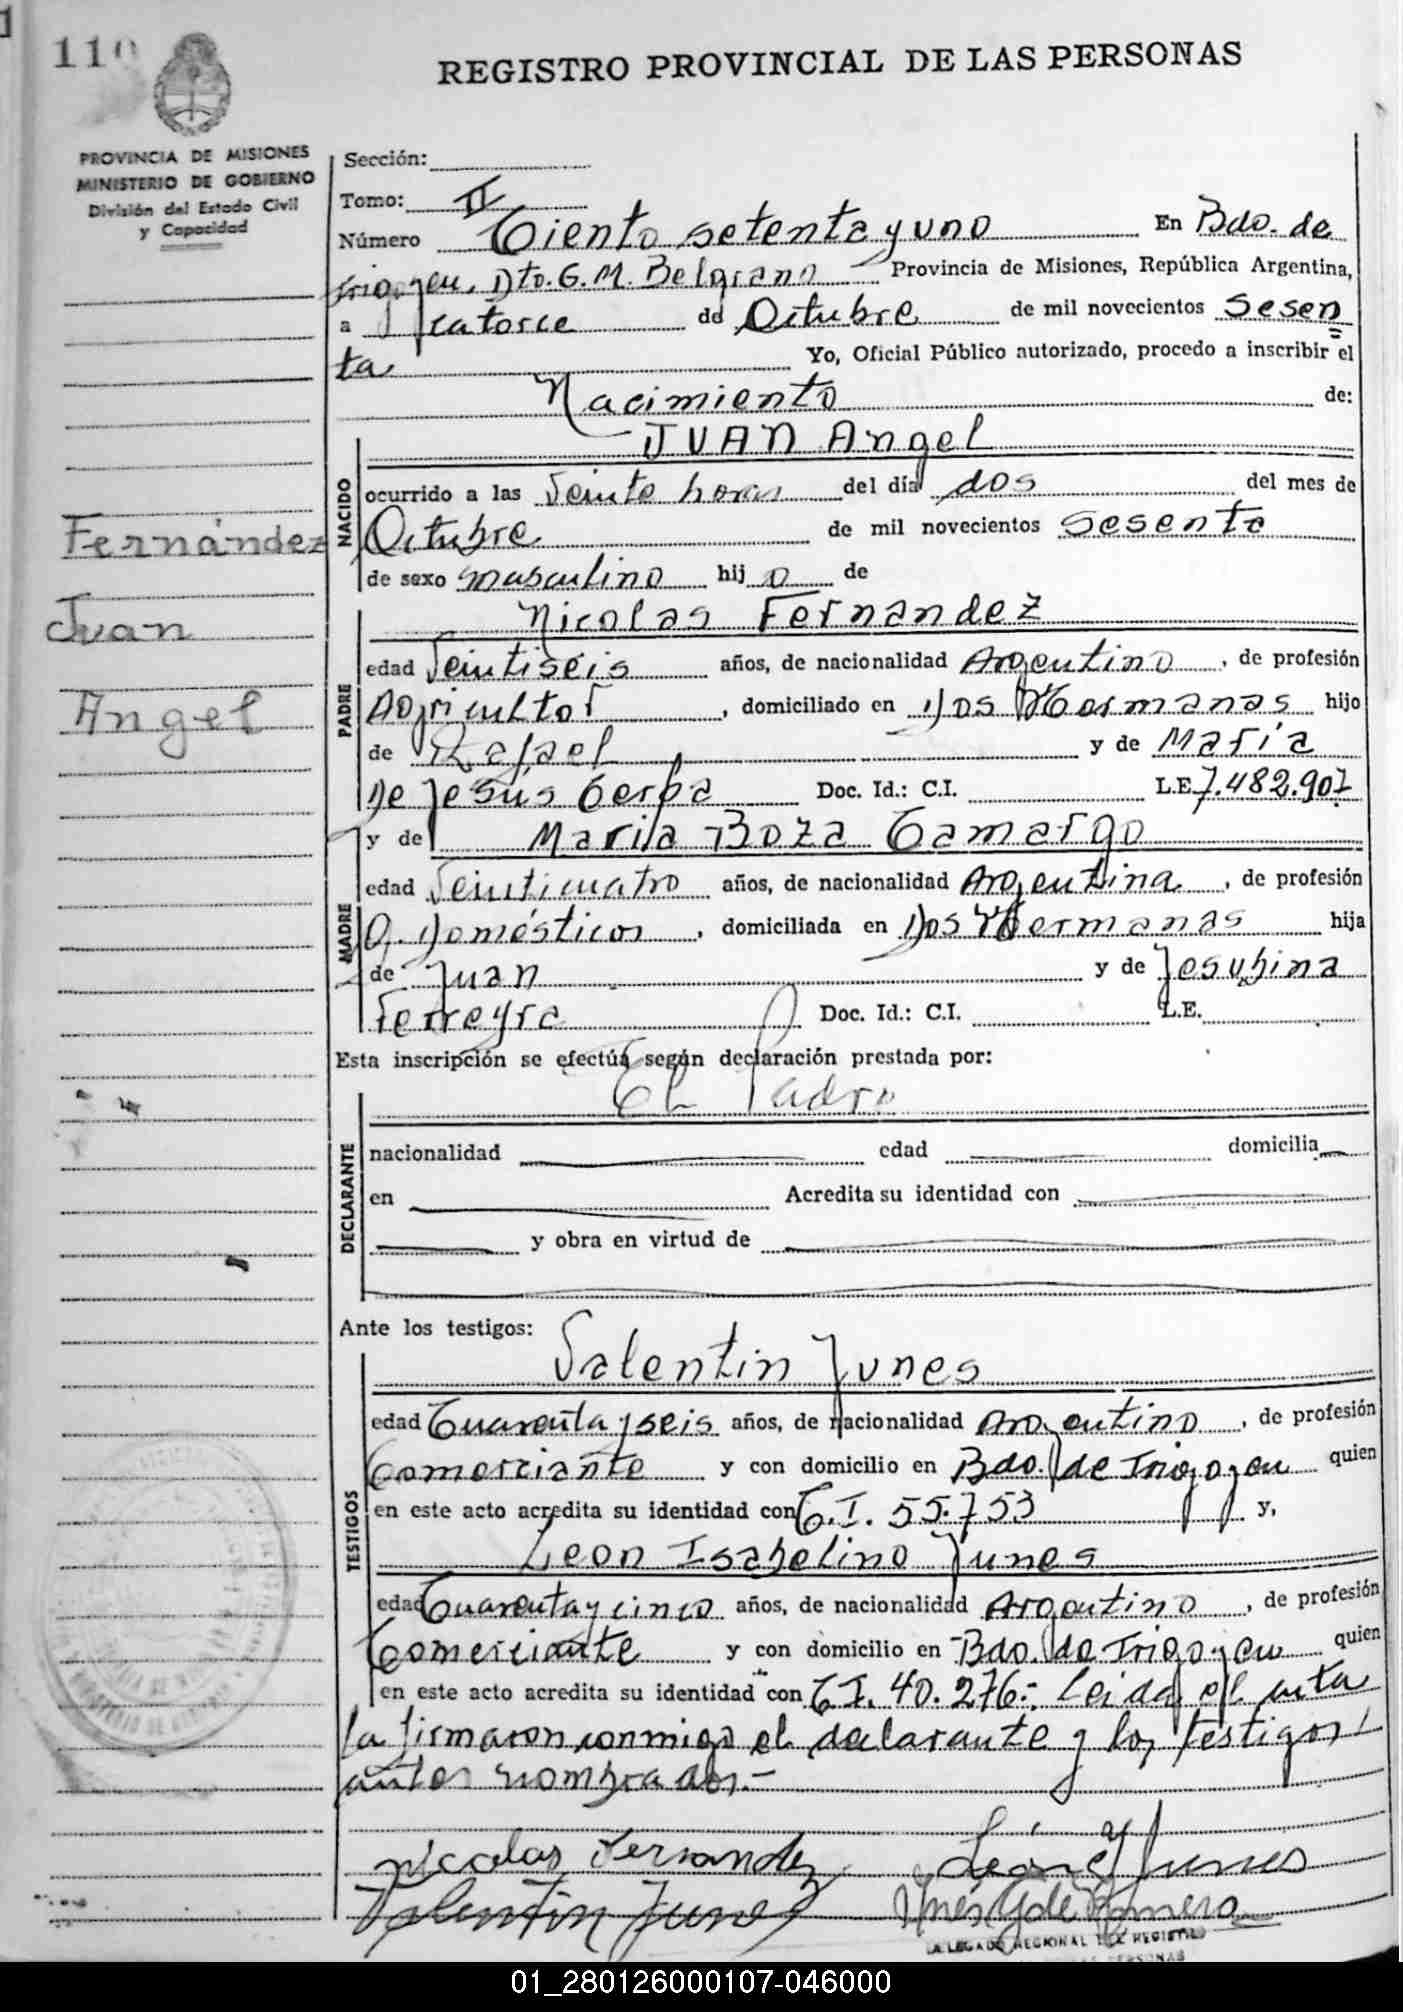 110
REGISTRO PROVINCIAL DE LAS PERSONAS
PROVINCIA DE MISIONES
MINISTERIO DE GOBIERNO
División del Estado Civil
y Capacidad
Sección:
Tomo: II
Número Ciento setenta y uno En Bdo. de
Irigoyen, Dto. G. M. Belgrano Provincia de Misiones, República Argentina,
a catorce de Octubre de mil novecientos Sesen
ta Yo, Oficial Público autorizado, procedo a inscribir el
Nacimiento de:
JUAN Angel
NACIDO
ocurrido a las Veinte horas del día dos del mes de
Octubre de mil novecientos Sesenta
de sexo masculino hijo de
Fernández
Juan
Angel
PADRE
Nicolas Fernandez
edad Veintiseis años, de nacionalidad Argentino, de profesión
Agricultor, domiciliado en Dos Hermanas hijo
de Rafael y de María
De Jesús Cerpa Doc. Id.: C.I. L.E. 7.482.907
MADRE
y de Maria Boza Camargo
edad Veinticuatro años, de nacionalidad Argentina, de profesión
Q. Domésticos, domiciliada en Dos Hermanas hija
de Juan y de Jesubina
Ferreyra Doc. Id.: C.I. L.E.
Esta inscripción se efectúa según declaración prestada por:
El Padre
DECLARANTE
nacionalidad edad domicilia
en Acredita su identidad con
y obra en virtud de
Ante los testigos:
TESTIGOS
Valentin Junes
edad Cuarenta y seis años, de nacionalidad Argentino, de profesión
Comerciante y con domicilio en Bdo. de Irigoyen quien
en este acto acredita su identidad con C.I. 55.753 y,
Leon Isabelino Junes
edad Cuarenta y cinco años, de nacionalidad Argentino, de profesión
Comerciante y con domicilio en Bdo. de Irigoyen quien
en este acto acredita su identidad con C.I. 40.276.- Leida el acta
la firmaron conmigo el declarante y los testigos
antes nombrados.-
Nicolas Fernandez
León Junes
Valentin Junes
DELEGADO REGIONAL DEL REGISTRO
PERSONAS
01_280126000107-046000